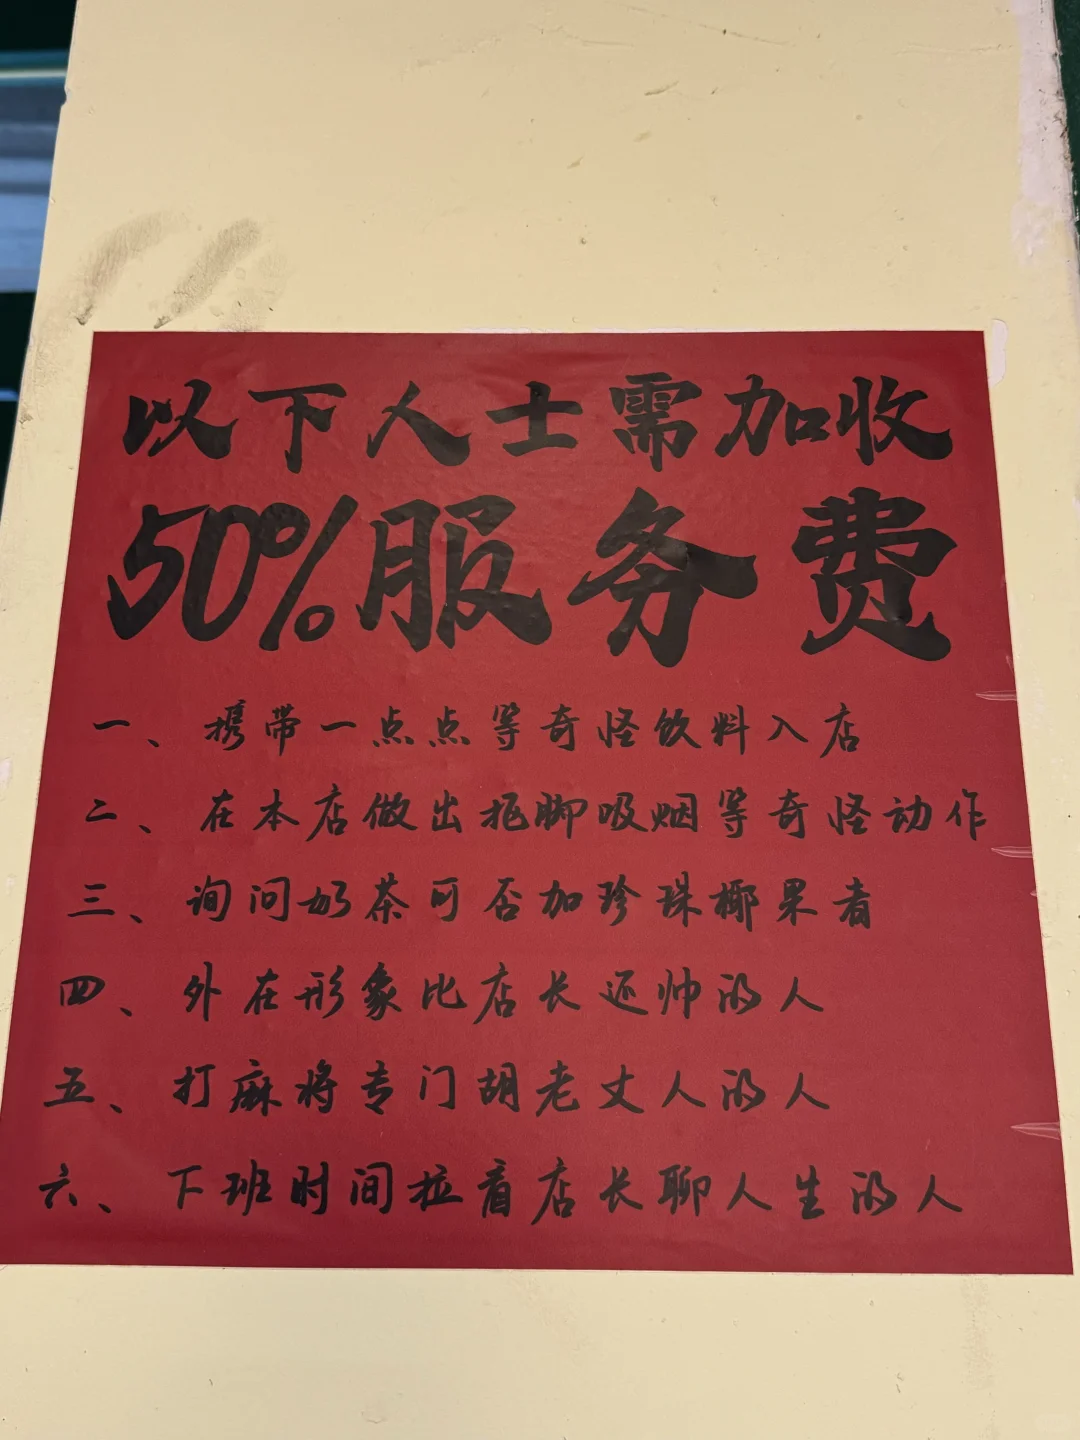 以下人士需加收
50%服务费
一、携带一点点等奇怪饮料入店
二、在本店做出抠脚吸烟等奇怪动作
三、询问奶茶可否加珍珠椰果者
四、外在形象比店长还帅的人
五、打麻将专门胡老丈人的人
六、下班时间拉着店长聊人生的人